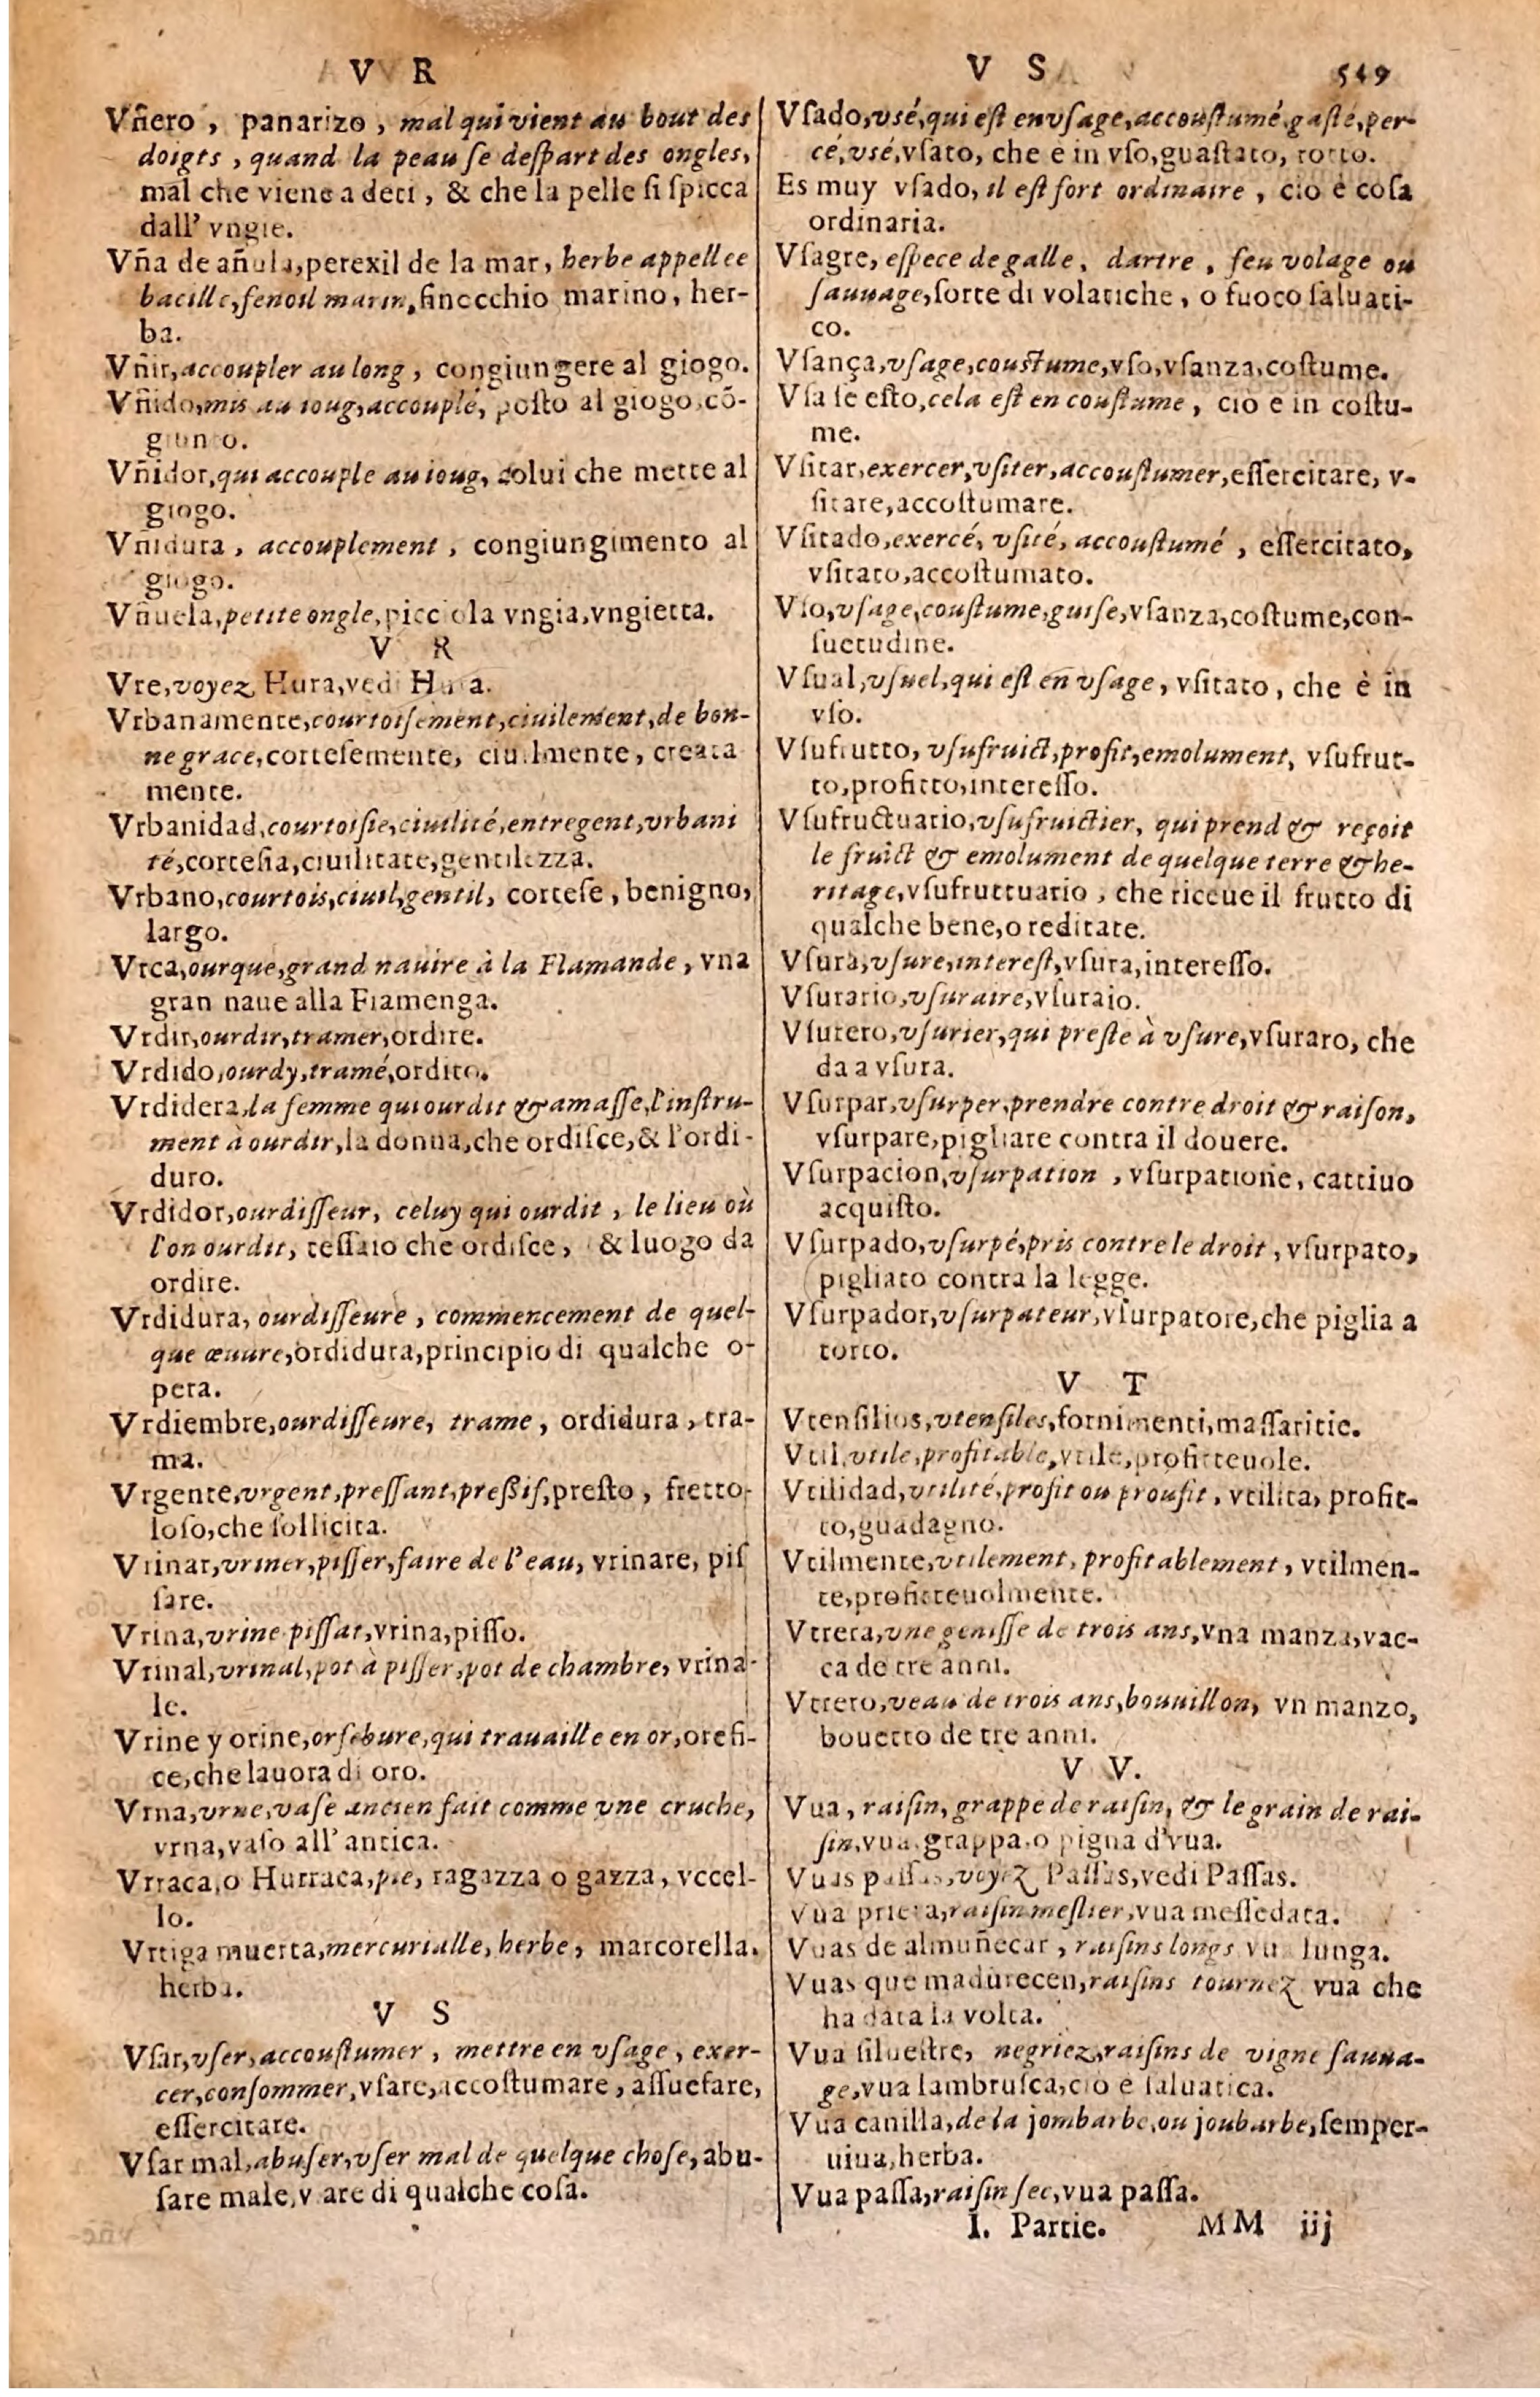 V R
Vñero, panarizo, mal qui vient au bout des
doigts, quand la peau se deſpart des ongles,
mal che viene a deti, & che la pelle ſi ſpicca
dall' vngie.
Vña de añula, perexil de la mar, herbe appellee
bacille, fenoil marin, finocchio marino, her-
ba.
Vñir, accoupler au long, congiungere al giogo.
Vñido, mis au ioug, accouplé, poſto al giogo, cõ-
giunto.
Vñidor, qui accouple au ioug, colui che mette al
giogo.
Vñidura, accouplement, congiungimento al
giogo.
Vñuela, petite ongle, picciola vngia, vngietta.
V R
Vre, voyez Hura, vedi Hura.
Vrbanamente, courtoiſement, ciuilement, de bon-
ne grace, corteſemente, ciuilmente, creata
mente.
Vrbanidad, courtoiſie, ciuilité, entregent, vrbani
té, corteſia, ciuilitate, gentilezza.
Vrbano, courtois, ciuil, gentil, corteſe, benigno,
largo.
Vrca, ourque, grand nauire à la Flamande, vna
gran naue alla Fiamenga.
Vrdir, ourdir, tramer, ordire.
Vrdido, ourdy, tramé, ordito.
Vrdidera, la femme qui ourdit & amaſſe, l'inſtru-
ment à ourdir, la donna, che ordiſce, & l'ordi-
duro.
Vrdidor, ourdiſſeur, celuy qui ourdit, le lieu où
l'on ourdit, teſſaio che ordiſce, & luogo da
ordire.
Vrdidura, ourdiſſeure, commencement de quel-
que œuure, ordidura, principio di qualche o-
pera.
Vrdiembre, ourdiſſeure, trame, ordidura, tra-
ma.
Vrgente, vrgent, preſſant, preßif, preſto, fretto-
loſo, che ſollicita.
Vrinar, vriner, piſſer, faire de l'eau, vrinare, piſ
ſare.
Vrina, vrine piſſat, vrina, piſſo.
Vrinal, vrinal, pot à piſſer, pot de chambre, vrina-
le.
Vrine y orine, orfebure, qui trauaille en or, orefi-
ce, che lauora di oro.
Vrna, vrne, vaſe ancien fait comme vne cruche,
vrna, vaſo all' antica.
Vrraca, o Hurraca, pie, ragazza o gazza, vccel-
lo.
Vrtiga muerta, mercurialle, herbe, marcorella.
herba.
V S
Vſar, vſer, accouſtumer, mettre en vſage, exer-
cer, conſommer, vſare, accoſtumare, aſſuefare,
eſſercitare.
Vſar mal, abuſer, vſer mal de quelque choſe, abu-
ſare male, v are di qualche coſa.
V S 549
Vſado, vsé, qui eſt en vſage, accouſtumé, gaſté, per-
cé, vsé, vſato, che è in vſo, guaſtato, rotto.
Es muy vſado, il eſt fort ordinaire, cio è coſa
ordinaria.
Vſagre, eſpece de galle, dartre, feu volage ou
ſauuage, ſorte di volatiche, o fuoco ſaluati-
co.
Vſança, vſage, couſtume, vſo, vſanza, coſtume.
Vſa ſe eſto, cela eſt en couſtume, cio e in coſtu-
me.
Vſitar, exercer, vſiter, accouſtumer, eſſercitare, v-
ſitare, accoſtumare.
Vſitado, exercé, vſité, accouſtumé, eſſercitato,
vſitato, accoſtumato.
Vſo, vſage, couſtume, guiſe, vſanza, coſtume, con-
ſuetudine.
Vſual, vſuel, qui eſt en vſage, vſitato, che è in
vſo.
Vſufrutto, vſufruict, profit, emolument, vſufrut-
to, profitto, intereſſo.
Vſufructuario, vſufruictier, qui prend & reçoit
le fruict & emolument de quelque terre & he-
ritage, vſufruttuario, che riceue il frutto di
qualche bene, o reditate.
Vſura, vſure, intereſt, vſura, intereſſo.
Vſurario, vſuraire, vſuraio.
Vſurero, vſurier, qui preſte à vſure, vſuraro, che
da a vſura.
Vſurpar, vſurper, prendre contre droit & raiſon,
vſurpare, pigliare contra il douere.
Vſurpacion, vſurpation, vſurpatione, cattiuo
acquiſto.
Vſurpado, vſurpé, pris contre le droit, vſurpato,
pigliato contra la legge.
Vſurpador, vſurpateur, vſurpatore, che piglia a
torto.
V T
Vtenſilios, vtenſiles, fornimenti, maſſaritie.
Vtil, vtile, profitable, vtile, profitteuole.
Vtilidad, vtilité, profit ou proufit, vtilita, profit-
to, guadagno.
Vtilmente, vtilement, profitablement, vtilmen-
te, profitteuolmente.
Vtrera, vne geniſſe de trois ans, vna manza, vac-
ca de tre anni.
Vtrero, veau de trois ans, bouuillon, vn manzo,
bouetto de tre anni.
V V.
Vua, raiſin, grappe de raiſin, & le grain de rai-
ſin, vua, grappa, o pigna d'vua.
Vuas paſſas, voyez Paſſas, vedi Paſſas.
Vua prieta, raiſin meſlier, vua meſſedata.
Vuas de almuñecar, raiſins longs vua lunga.
Vuas que madurecen, raiſins tournez vua che
ha data la volta.
Vua ſilueſtre, negriez, raiſins de vigne ſauua-
ge, vua lambruſca, cio e ſaluatica.
Vua canilla, de la jombarbe, ou joubarbe, ſemper-
uiua, herba.
Vua paſſa, raiſin ſec, vua paſſa.
I. Partie. MM iij